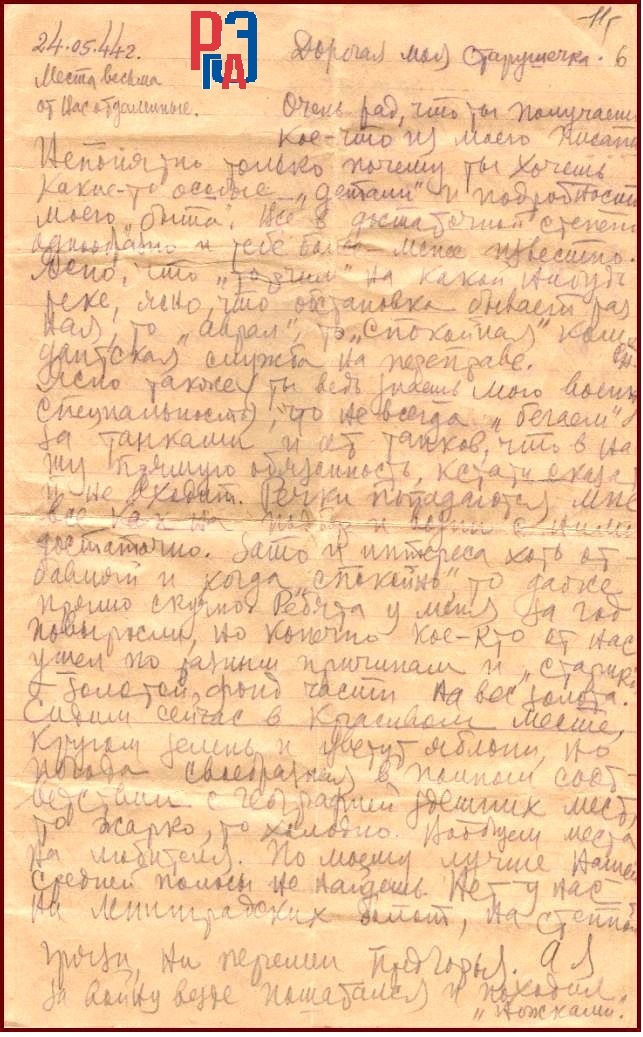 11
24.05.44г.
РГАЭ
Дорогая моя старушечка. 6
Места весьма
от нас отдаленные.
Очень рад, что ты получаешь
кое-что из моего писани
Непонятно только почему ты хочешь
какие-то особые „детали" и подробности
моего „быта". Все в достаточной степени
однообразно и тебе более-менее известно.
Ясно, что на какой нибудь
реке, ясно, что обстановка бывает раз
ная, то „аврал", то „спокойная" комен
дантская служба на переправе.
Ясно также, ты ведь знаешь мою воен
специальность, что не всегда „бегаем"
за танками и от танков, что в на
шу прямую обязанность, кстати сказа
и не входит. Речки попадаются мне
все как на и с ними
достаточно. Зато и интереса хоть от-
бавляй и когда „спокойно", то даже
прямо скучно. Ребята у меня за год
повыросли, но конечно кое-кто от нас
ушел по разным причинам и „старики"
- золотой фонд части на вес золота.
Сидим сейчас в красивом месте,
кругом зелень и цветут яблони, но
погода своеобразная, в полном соот-
ветствии с географией здешних мест,
то жарко, то холодно. Вообщем места
на любителя. По моему лучше нашей
средней полосы не найдешь. Нет у нас
ни Ленинградских болот, ни степной
грязи, ни перемен Предгорья. А я
за войну везде пошатался и походил
„ножками".